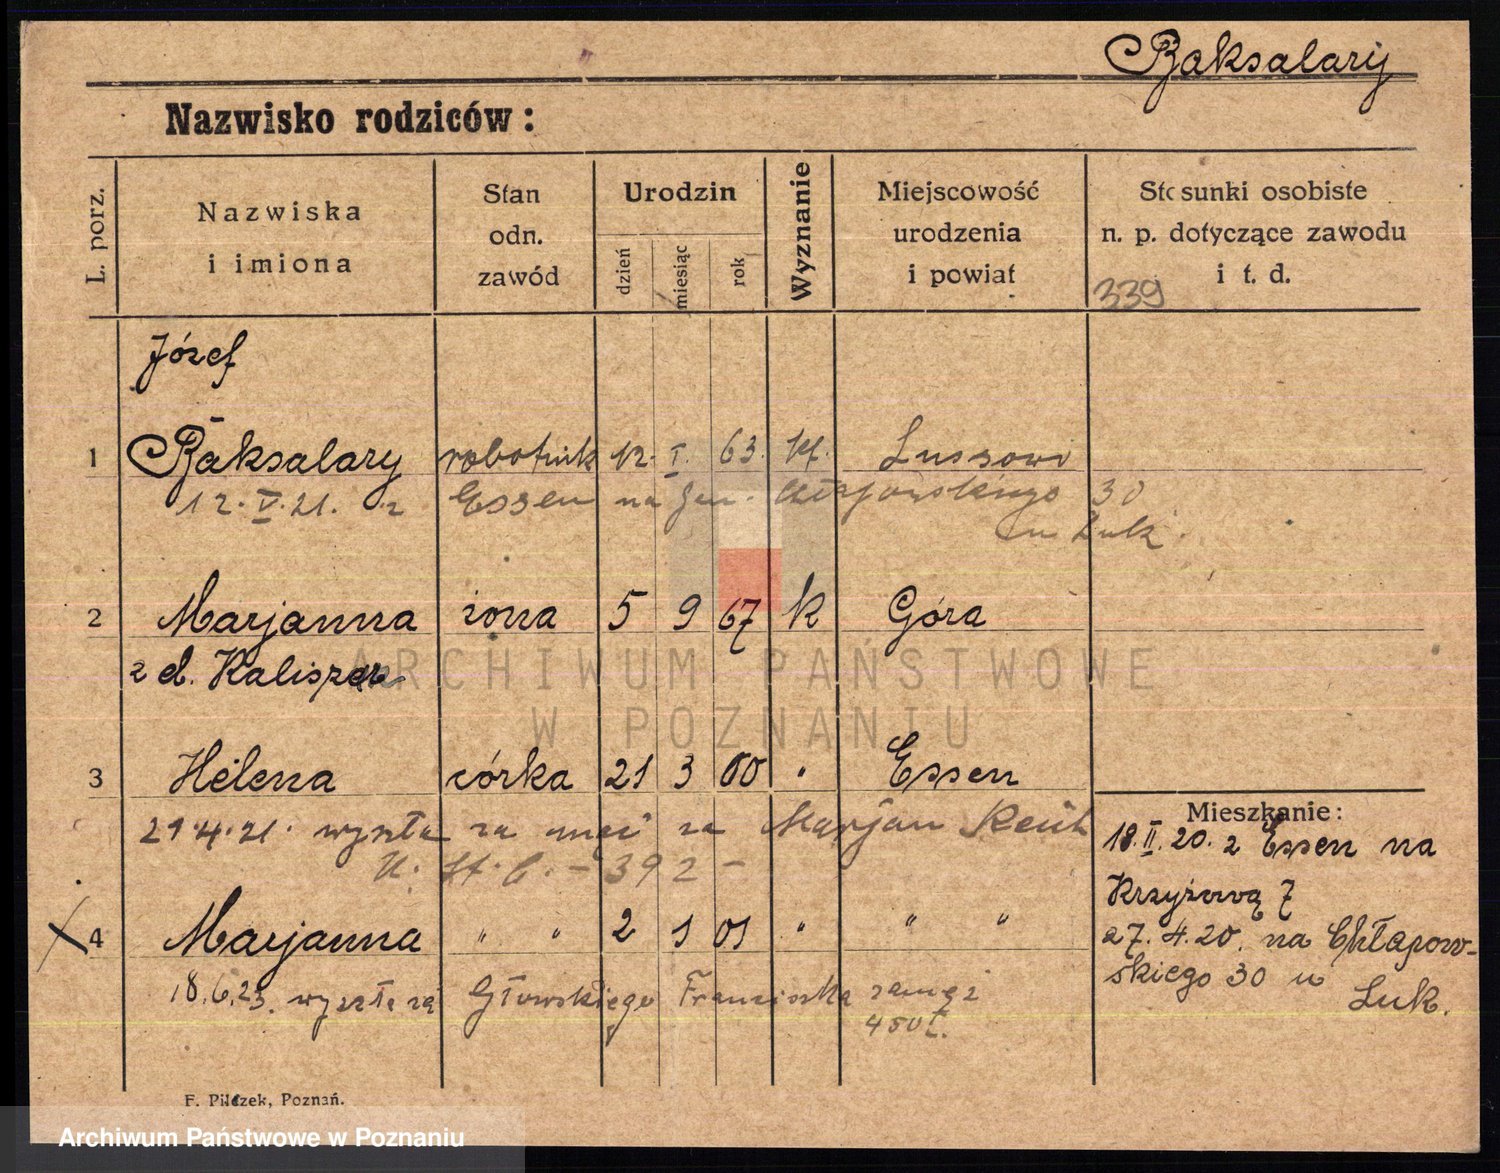 Baksalary
Nazwisko rodziców:
L. porz.
Nazwiska
i imiona
Stan
odn.
zawód
Urodzin
dzień
miesiąc
rok
Wyznanie
Miejscowość
urodzenia
i powiat
Stosunki osobiste
n. p. dotyczące zawodu
i t. d.
339
Józef
1 Baksalary robotnik 12. I. 63. kt. Lussowo
12. V. 21. z Essen na Chłapowskiego 30
u Luk.
2 Marjanna żona 5 9 67 k Góra
z d. Kaliszan
3 Helena córka 21 3 00 " Essen
29.4.21. wyszła za mąż za Marjan
392 -
4 Marjanna " " 2 1 01 " " "
18.6.23. wyszła za Głowskiego Franciszka zamąż
Mieszkanie:
18. II. 20. z Essen na
Krzyżową 7
27. 4. 20. na Chłapow-
skiego 30 u
Luk.
F. Pilczek, Poznań.
ARCHIWUM PAŃSTWOWE
W POZNANIU
Archiwum Państwowe w Poznaniu